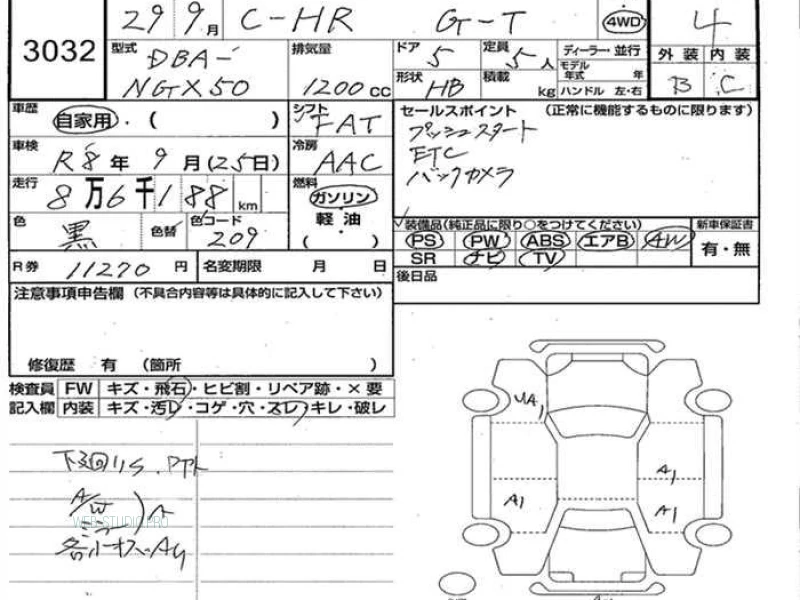 29 9月 C-HR G-T 4WD 4
3032
型式 DBA- 排気量 ドア 5 定員 5人 ディーラー・並行 外装 内装
NGX50 1200cc 形状 HB 積載 kg モデル年式 年 B C
ハンドル 左・右
車歴 自家用・( ) シフト FAT セールスポイント (正常に機能するものに限ります)
車検 R8年 9月(25日) 冷房 AAC プッシュスタート
ETC
走行 8万6千188km 燃料 ガソリン バックカメラ
軽油
色 黒 色替 色コード 209 ( )
装備品(純正品に限り○をつけてください) 新車保証書
PS PW ABS エアB AW 有・無
SR ナビ TV
R券 11270円 名変期限 月 日 後日品
注意事項申告欄(不具合内容等は具体的に記入して下さい)
修復歴 有 (箇所 )
検査員 FW キズ・飛石・ヒビ割・リペア跡・×要
記入欄 内装 キズ・汚レ・コゲ・穴・スレ・キレ・破レ
UA,
A1
A1
A1
下廻りS.
A/W
ミラー
WEB-STUDIO.PRO